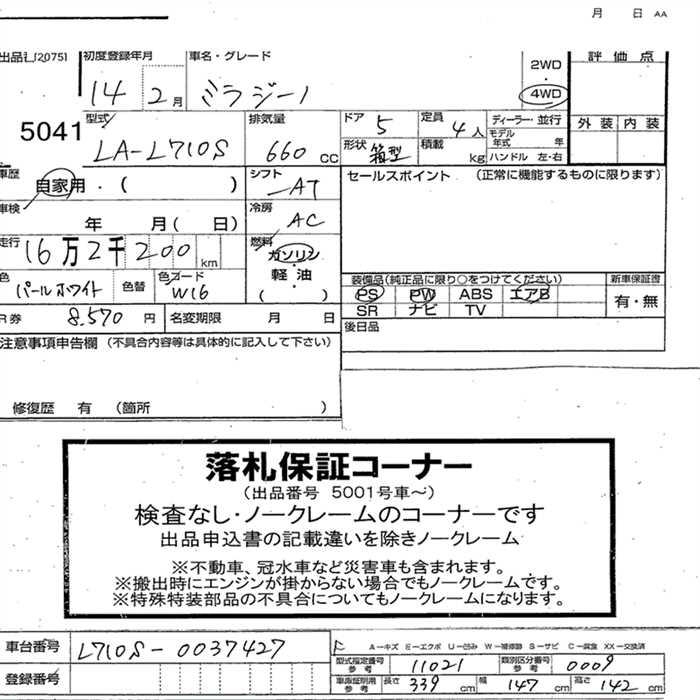 月 日 AA
出品 [2075] 初度登録年月 車名・グレード 2WD ・ 4WD 評価点
14 2月 ミラジーノ
5041
型式 LA-L710S 排気量 660cc
ドア 5 定員 4人 ディーラー・並行
モデル年式 年
形状 箱型 積載 kg ハンドル 左・右
外装 内装
車歴 自家用・( )
シフト AT
セールスポイント (正常に機能するものに限ります)
車検 年 月( 日)
冷房 AC
走行 16万2千200km
燃料 ガソリン・軽油 ( )
色 パールホワイト 色替 色コード W16
装備品(純正品に限り○をつけてください) 新車保証書
PS PW ABS エアB 有・無
SR ナビ TV
R券 8.570円 名変期限 月 日
後日品
注意事項申告欄 (不具合内容等は具体的に記入して下さい)
修復歴 有 (箇所 )
落札保証コーナー
(出品番号 5001号車~)
検査なし・ノークレームのコーナーです
出品申込書の記載違いを除きノークレーム
※不動車、冠水車など災害車も含まれます。
※搬出時にエンジンが掛からない場合でもノークレームです。
※特殊特装部品の不具合についてもノークレームになります。
車台番号 L710S-0037427
A-キズ E-エクボ U-凹み W-補修跡 S-サビ C-腐食 XX-交換済
型式指定番号 参考 11021 類別区分番号 参考 0009
登録番号
車庫証明用 参考 長さ 339cm 幅 147cm 高さ 142cm